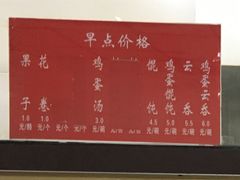 早点价格
果子 1.0 元/个
花卷 1.0 元/个
元/个
元/个
鸡蛋汤 3.0 元/碗
馄饨 4.5 元/碗
鸡蛋馄饨 5.0 元/碗
云吞 5.5 元/碗
鸡蛋云吞 6.0 元/碗